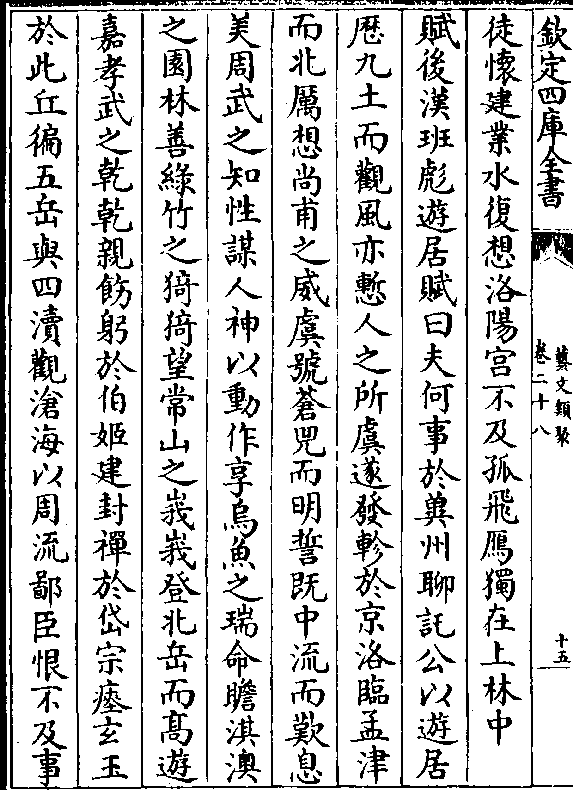 欽定四庫全書
藝文類聚
卷二十八
十五
徒懷建業水復想洛陽宮不及孤飛鴈獨在上林中
賦後漢班彪遊居賦曰夫何事於兾州聊託公以遊居
歴九土而觀風亦慙人之所虞遂發軫於京洛臨孟津
而北厲想尚甫之威虞號蒼兕而明誓既中流而歎息
美周武之知性謀人神以動作享烏魚之瑞命瞻淇澳
之園林善綠竹之猗猗望常山之峩峩登北岳而髙遊
嘉孝武之乾乾親飾躬於伯姬建封禪於岱宗瘞玄玉
於此丘徧五岳與四瀆觀滄海以周流鄙臣恨不及事